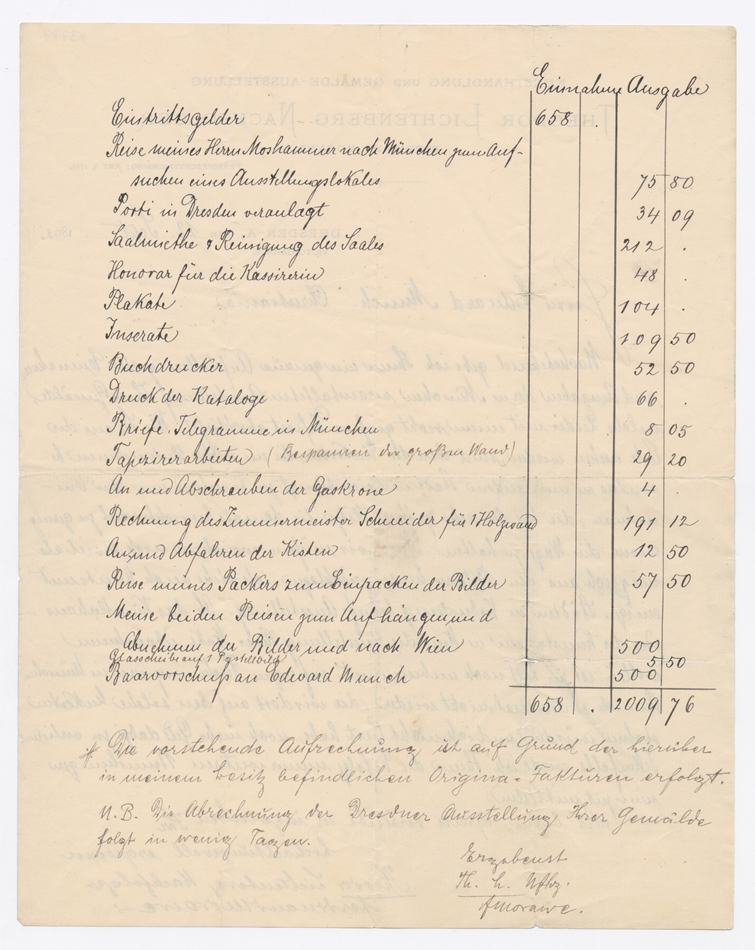 Einnahme Ausgabe
Eintrittsgelder 658 .
Reise meines Herrn Moshammer nach München zum Auf-
suchen eines Ausstellungslokales 75 80
Porti in Dresden veranlagt 34 09
Saalmiethe & Reinigung des Saales 212 .
Honorar für die Kassirerin 48 .
Plakate 104 .
Inserate 109 50
Buchdrucker 52 50
Druck der Kataloge 66 .
Briefe, Telegramme in München 8 05
Tapezirerarbeiten (Bespannen der großen Wand) 29 20
An und Abschrauben der Gaskrone 4 .
Rechnung des Zimmermeister Schneider für 1 Holzwand 191 12
An und Abfahren der Kisten 12 50
Reise meines Packers zum Einpacken der Bilder 57 50
Meine beiden Reisen zum Aufhängen und
Abnehmen der Bilder und nach Wien 500
Glasscheibe auf 1 Pastellbild 5 50
Baarvorschuß an Edvard Munch 500
658 . 2009 76
* Die vorstehende Aufrechnung ist auf Grund der hierüber
in meinem Besitz befindlichen Origina-Fakturen erfolgt.
N.B. Die Abrechnung der Dresdner Ausstellung Ihrer Gemälde
folgt in wenig Tagen.
Ergebenst
Th. L. Nfhg.
FMorawe.